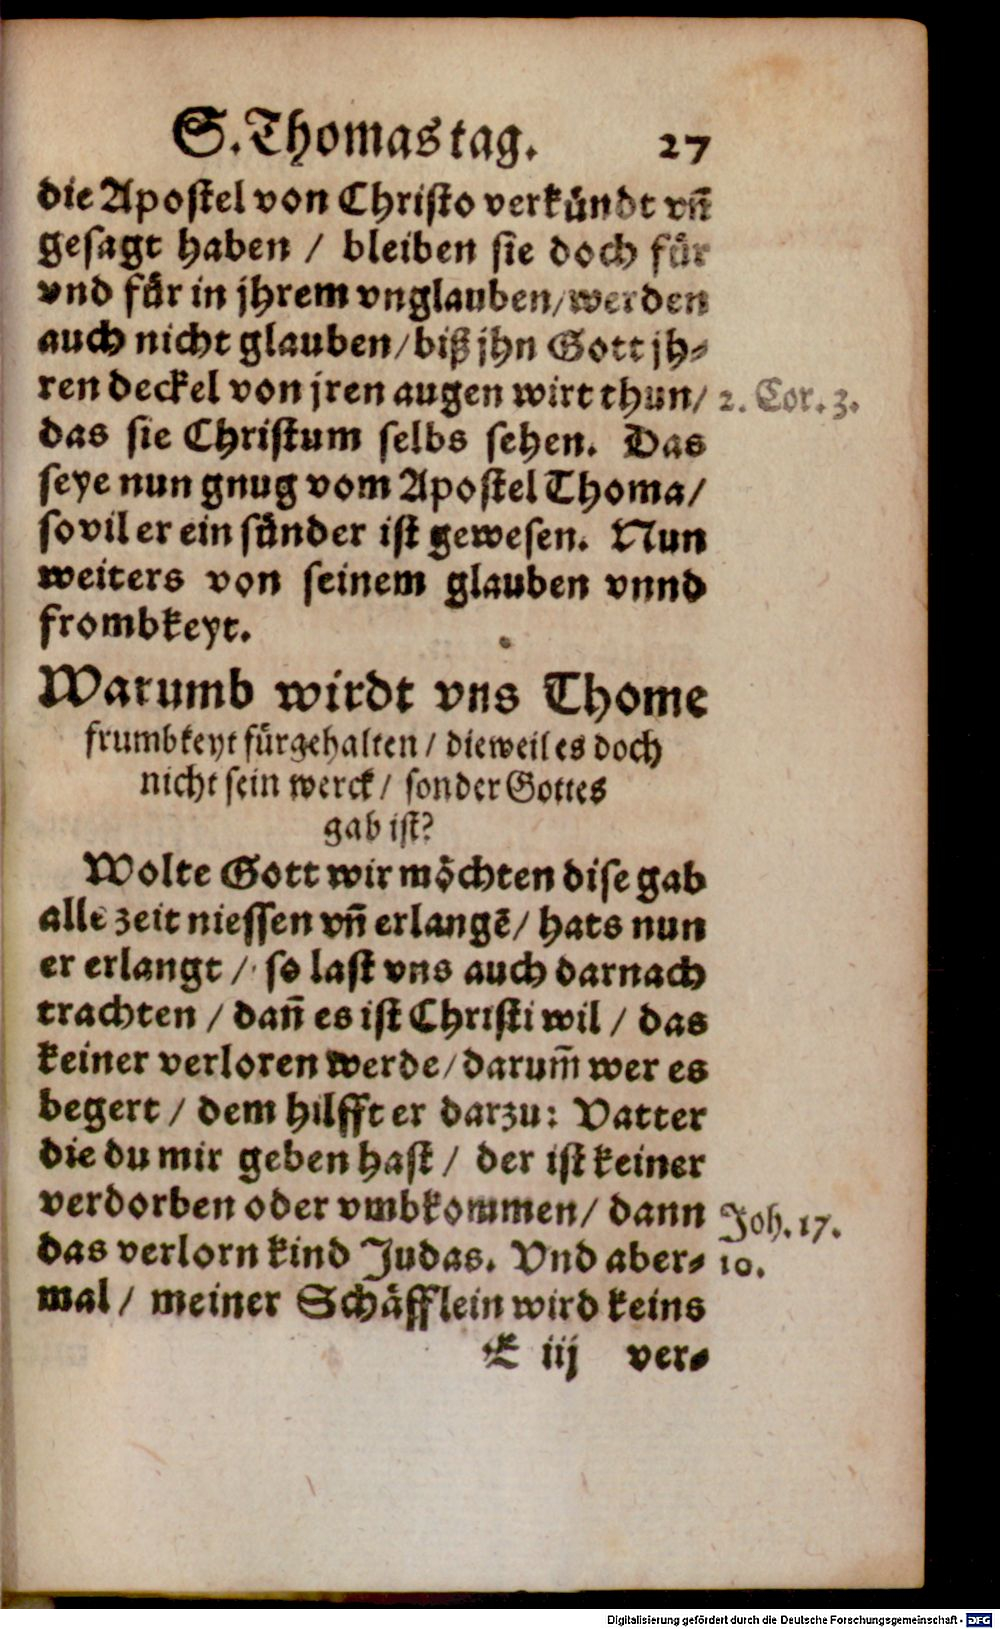 S. Thomas tag. 27
die Apostel von Christo verkündt vñ
gesagt haben / bleiben sie doch für
vnd für in jhrem vnglauben / werden
auch nicht glauben / biß jhn Gott jh⸗
ren deckel von jren augen wirt thun / 2. Cor. 3.
das sie Christum selbs sehen. Das
seye nun gnug vom Apostel Thoma /
so vil er ein sünder ist gewesen. Nun
weiters von seinem glauben vnnd
frombkeyt.
Warumb wirdt vns Thome
frumbkeyt fürgehalten / dieweil es doch
nicht sein werck / sonder Gottes
gab ist?
Wolte Gott wir möchten dise gab
alle zeit niessen vñ erlangẽ / hats nun
er erlangt / so last vns auch darnach
trachten / dañ es ist Christi wil / das
keiner verloren werde / darum̃ wer es
begert / dem hilfft er darzu: Vatter
die du mir geben hast / der ist keiner
verdorben oder vmbkommen / dann Joh. 17.
das verlorn kind Judas. Vnd aber⸗ 10.
mal / meiner Schäfflein wird keins
E iij ver⸗
Digitalisierung gefördert durch die Deutsche Forschungsgemeinschaft - DFG